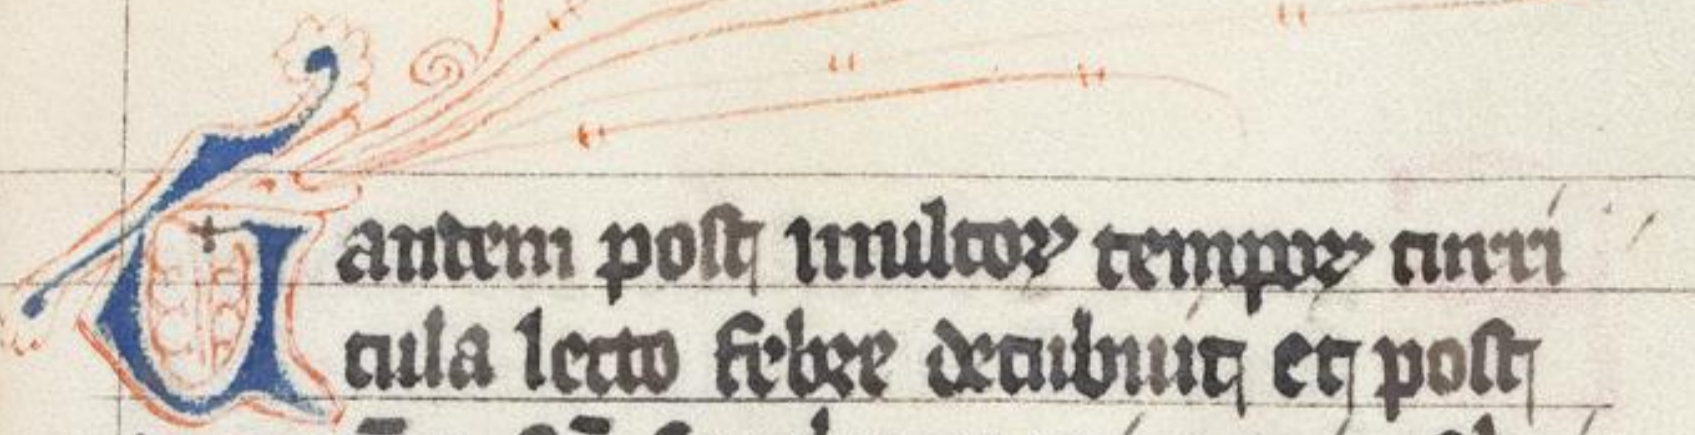 Tantem post multoꝝ tempoꝝ curri
cula lecto febre decubuit et post